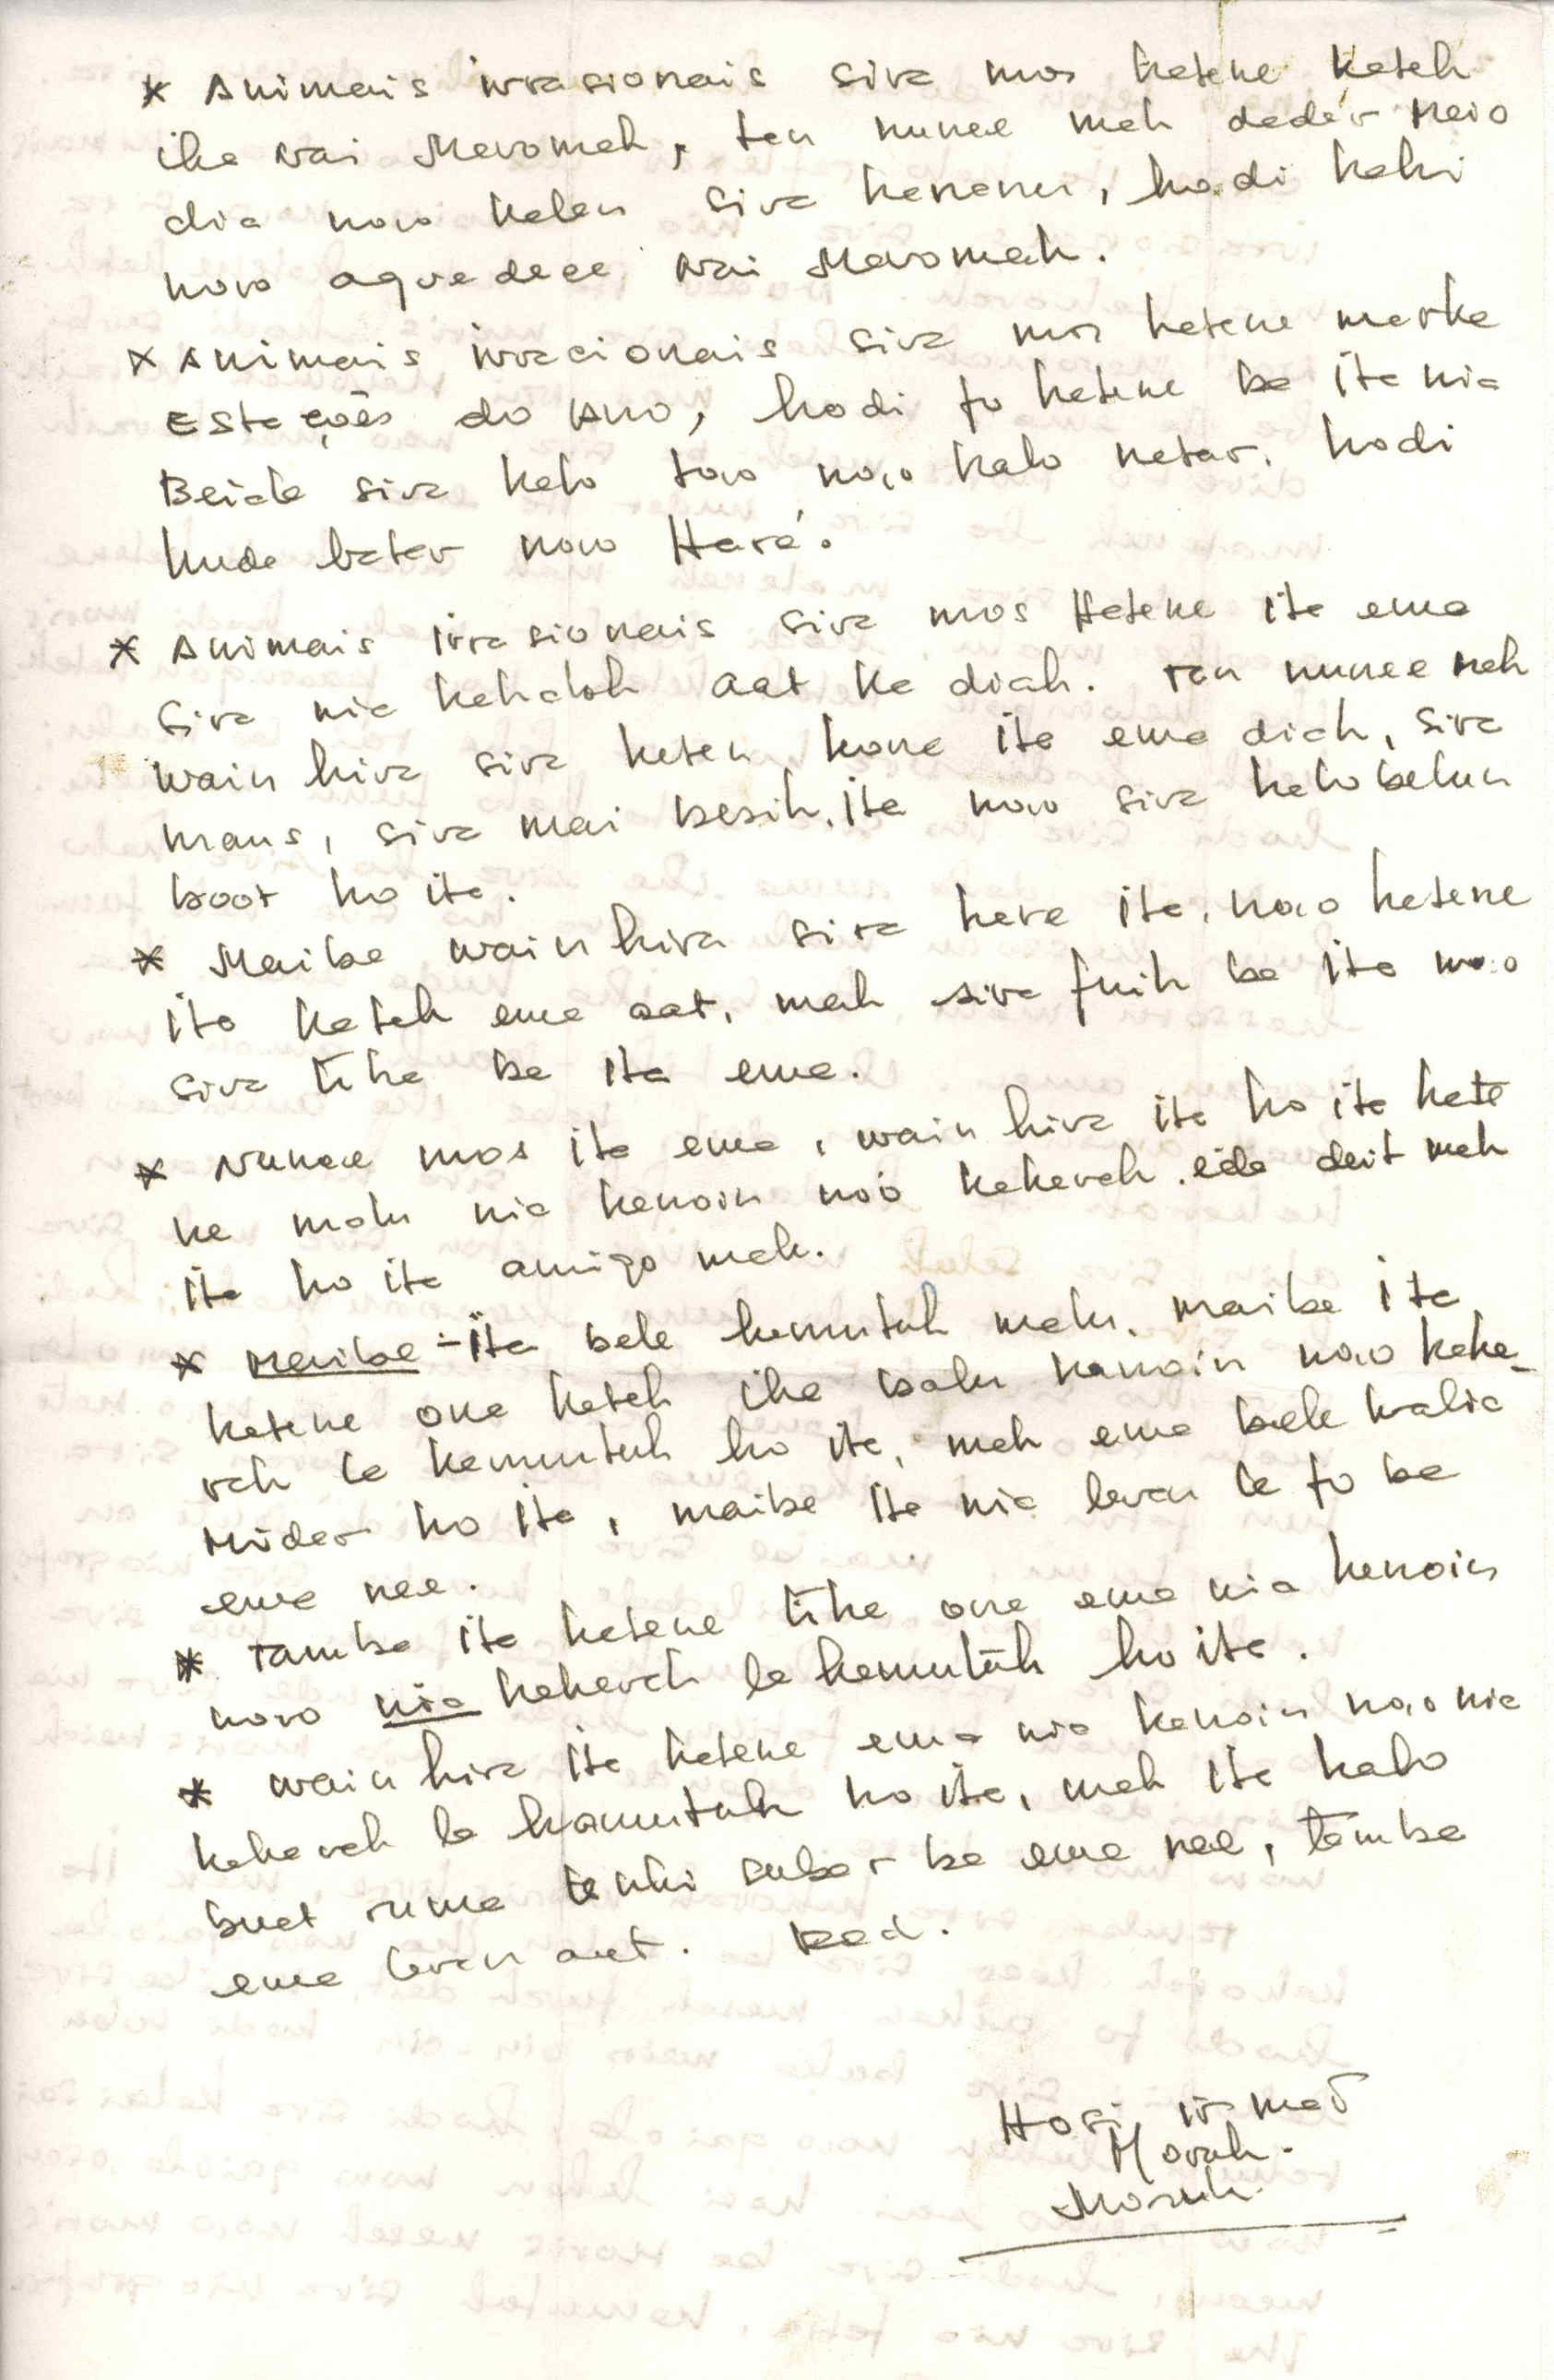 * Animais irrasionais sira mos hatene katak
iha Nai Maromak, tan nunee mak dadér Meio
dia noio kalan sira hananu, hodi hahi
noio agradece Nai Maromak.
* Animais irracionais sira mos hatene marka
Estações do Ano, hodi fo hatene ba ita nia
Beiala sira halo too noio halo natar. hodi
kuda batar noio Haré.
* Animais irrasionais sira mos Hatene ita ema
sira nia hahalok aat ka diak. Tan nunee mak
wain hira sira haten kona ita ema diak, sira
maus, sira mai besik. ita noio sira halo belun
boot ho ita.
* Maibe wain hira sira hare ita, noio hatene
ita katak ema aat, mak sira fuih ba ita noio
sira tiha ba ita ema.
* Nunee mos ita ema, wain hira ita ho ita hate
ne malu nia hanoin noio hakarak. eida deit mak
ita ho ita amigo mak.
* Maibe - ita bele hamutuk malu, maibe ita
hatene ona katak iha balu hanoin noio haka-
rak la hamutuk ho ita, mak ema bele halia
Mider ho ita, maibe ita nia laran la fo ba
ema nee.
* Tamba ita hatene tiha ona ema nia hanoin
noio nia hakarak la hamutuk ho ita.
* wain hira ita hatene ema nia hanoin noio nia
hakarak la hamutuk ho ita, mak ita halo
buat ruma tenki cuba r ba ema nee, tamba
ema laran aat.
Hosi irmaõ
Moruk.
Moruk.